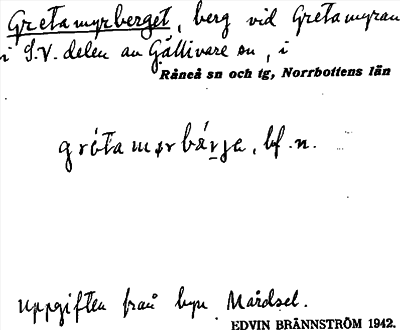 Gretamyrberget, berg vid Gretamyran
i S.V. delen av Gällivare sn, i
Råneå sn och tg, Norrbottens län
grétamørbǽrje, bf. n.
uppgiften från byn Mårdsel.
EDVIN BRÄNNSTRÖM 1942.